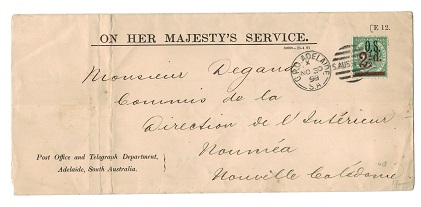 [E 12.
ON HER MAJESTY'S SERVICE.
O.S.
2½d.
G.P.O. ADELAIDE
X
NO 30
98
S.A.
S.AUS
Monsieur Degand
Commis de la
Direction de l'Intérieur
Nouméa
Nouvelle Calédonie
Post Office and Telegraph Department,
Adelaide, South Australia.